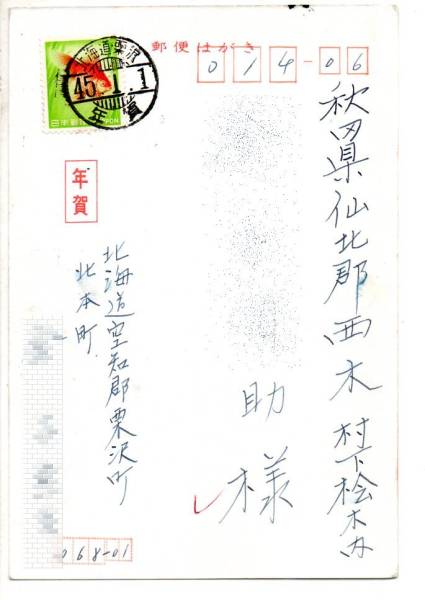 郵便はがき
014-06
北海道栗沢
45.1.1
年賀
日本郵便
NIPPON
年賀
秋田県仙北郡西木村下桧木内
助様
北海道空知郡栗沢町
北本町
068-01